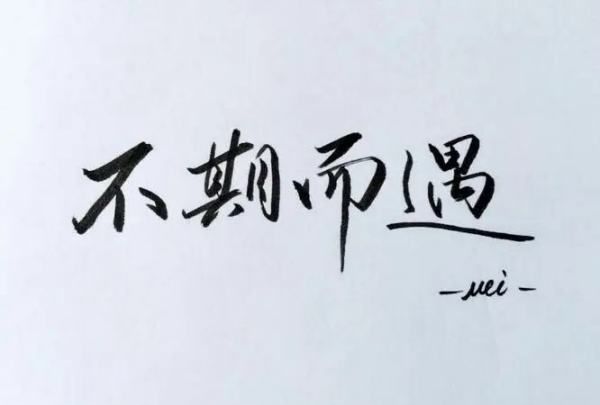 不期而遇
-uei-